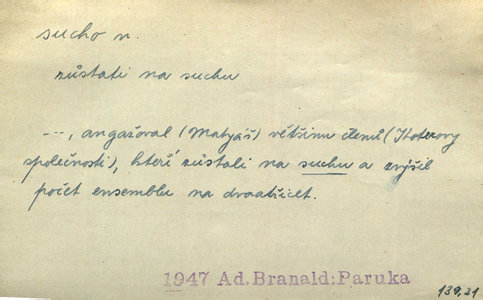 sucho n.
zůstati na suchu
---, angažoval (Matyáš) většinu členů (Hoterovy
společnosti), kteří zůstali na suchu a zvýšil
počet ensemblu na dvaatřicet.
1947 Ad. Branald: Paruka
139,21